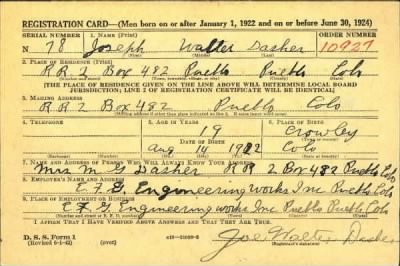 REGISTRATION CARD—(Men born on or after January 1, 1922 and on or before June 30, 1924)
SERIAL NUMBER 1. NAME (Print) ORDER NUMBER
N 78 Joseph Walter Dasher 10927
2. PLACE OF RESIDENCE (Print)
RR2 Box 482 Pueblo Pueblo Colo
[THE PLACE OF RESIDENCE GIVEN ON THE LINE ABOVE WILL DETERMINE LOCAL BOARD
JURISDICTION; LINE 2 OF REGISTRATION CERTIFICATE WILL BE IDENTICAL]
3. MAILING ADDRESS
RR2 Box 482 Pueblo Colo
4. TELEPHONE 5. AGE IN YEARS 6. PLACE OF BIRTH
19 Crowley
DATE OF BIRTH
Aug 14 1922 Colo
7. NAME AND ADDRESS OF PERSON WHO WILL ALWAYS KNOW YOUR ADDRESS
Mrs M G Dasher RR 2 Box 482 Pueblo Colo
8. EMPLOYER'S NAME AND ADDRESS
C. F. G. Engineering works Inc Pueblo Colo
9. PLACE OF EMPLOYMENT OR BUSINESS
C F G Engineering works Inc Pueblo Pueblo Colo
I AFFIRM THAT I HAVE VERIFIED ABOVE ANSWERS AND THAT THEY ARE TRUE.
D. S. S. Form 1
(Revised 6-1-42) (over)
Joe Walter Dasher